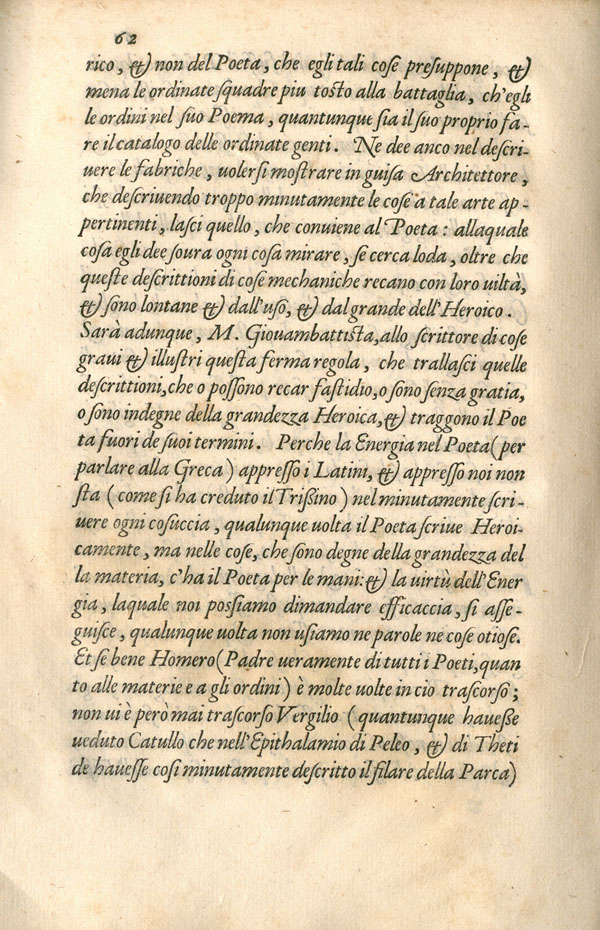 62
rico, & non del Poeta, che egli tali cose presuppone, &
mena le ordinate squadre piu tosto alla battaglia, ch'egli
le ordini nel suo Poema, quantunque sia il suo proprio fa-
re il catalogo delle ordinate genti. Ne dee anco nel descri-
uere le fabriche, uolersi mostrare in guisa Architettore,
che descriuendo troppo minutamente le cose a tale arte ap-
pertinenti, lasci quello, che conuiene al Poeta: allaquale
cosa egli dee soura ogni cosa mirare, se cerca loda, oltre che
queste descrittioni di cose mechaniche recano con loro uiltà,
& sono lontane & dall'uso, & dal grande dell'Heroico.
Sarà adunque, M. Giouambattista, allo scrittore di cose
graui & illustri questa ferma regola, che trallasci quelle
descrittioni, che o possono recar fastidio, o sono senza gratia,
o sono indegne della grandezza Heroica, & traggono il Poe
ta fuori de suoi termini. Perche la Energia nel Poeta (per
parlare alla Greca) appresso i Latini, & appresso noi non
sta (come si ha creduto il Trissino) nel minutamente scri-
uere ogni cosuccia, qualunque uolta il Poeta scriue Heroi-
camente, ma nelle cose, che sono degne della grandezza del
la materia, c'ha il Poeta per le mani: & la uirtù dell'Ener
gia, laquale noi possiamo dimandare efficaccia, si asse-
guisce, qualunque uolta non usiamo ne parole ne cose otiose.
Et se bene Homero (Padre ueramente di tutti i Poeti, quan
to alle materie e a gli ordini) è molte uolte in cio trascorso;
non ui è però mai trascorso Vergilio (quantunque hauesse
ueduto Catullo che nell'Epithalamio di Peleo, & di Theti
de hauesse cosi minutamente descritto il filare della Parca)